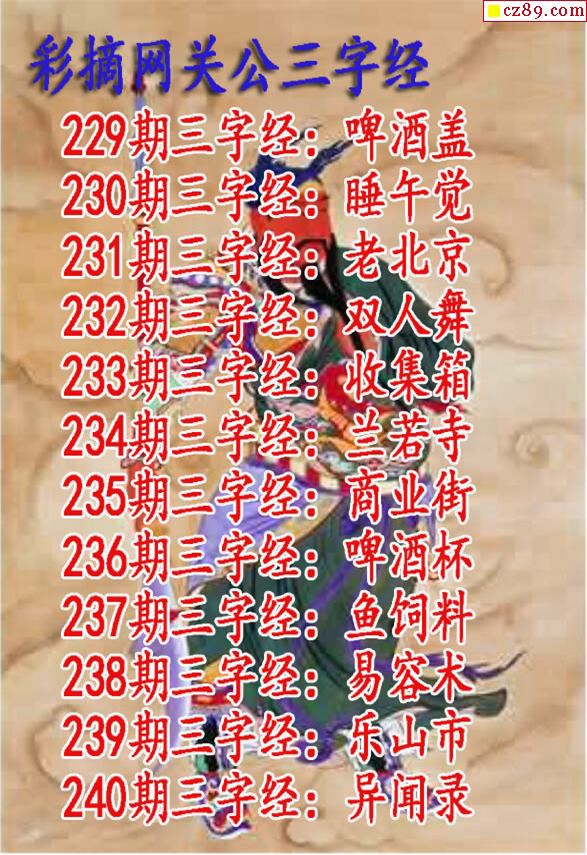 cz89.com
彩摘网关公三字经
229期三字经：啤酒盖
230期三字经：睡午觉
231期三字经：老北京
232期三字经：双人舞
233期三字经：收集箱
234期三字经：兰若寺
235期三字经：商业街
236期三字经：啤酒杯
237期三字经：鱼饲料
238期三字经：易容术
239期三字经：乐山市
240期三字经：异闻录